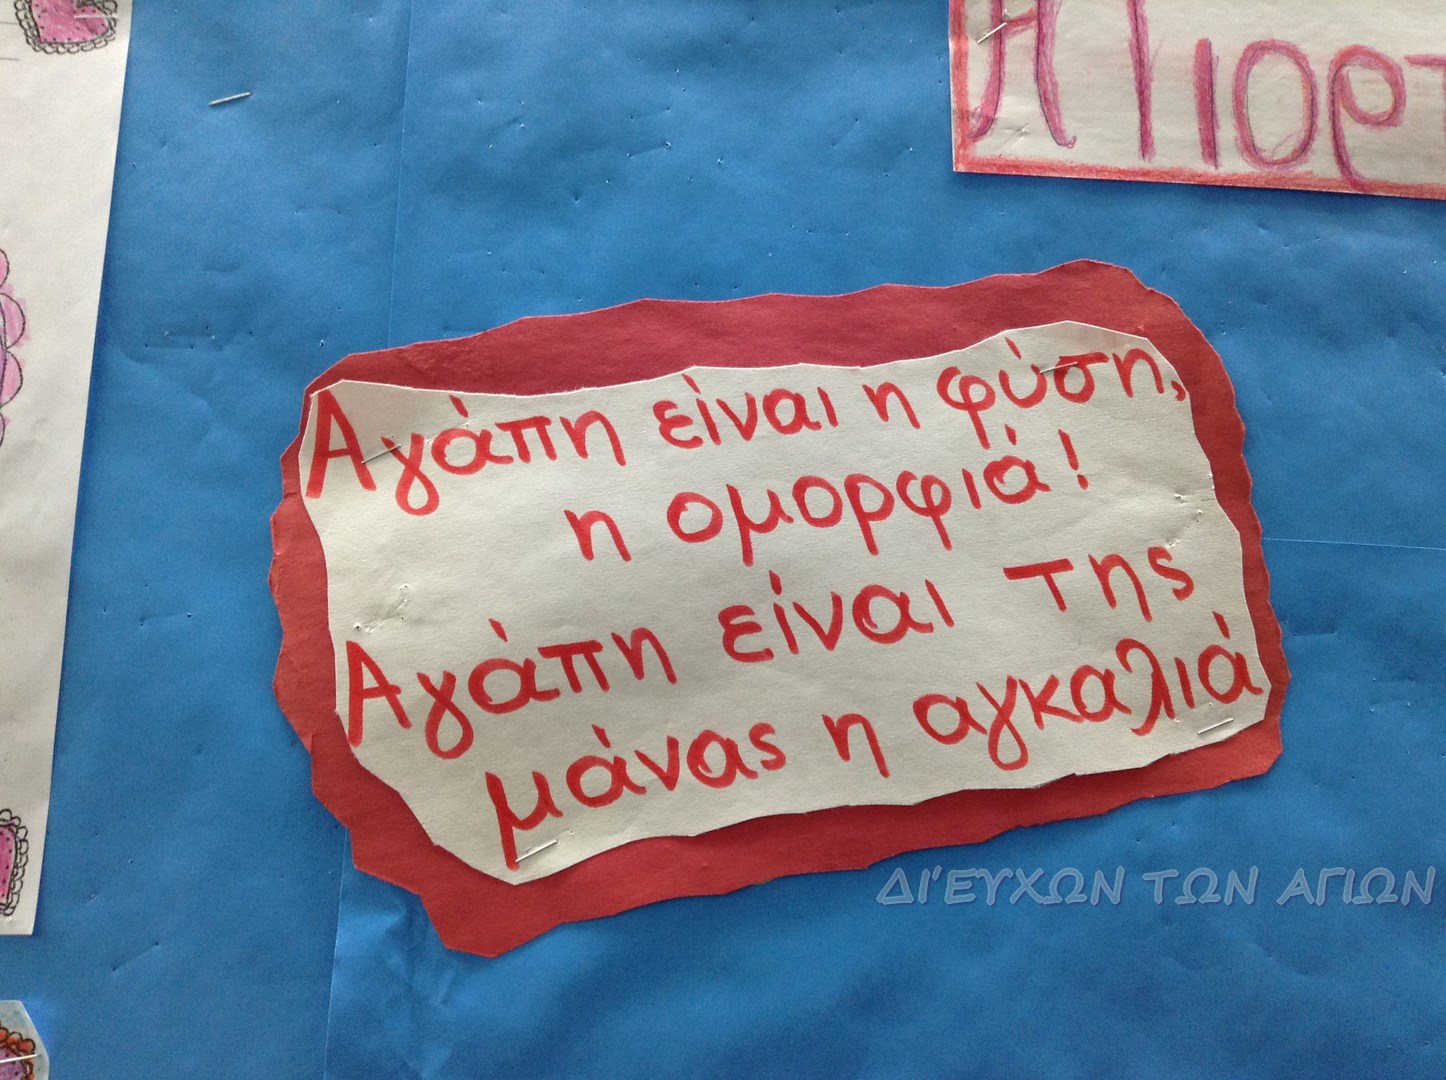 Η Γιορτ
Αγάπη είναι η φύση,
η ομορφιά!
Αγάπη είναι της
μάνας η αγκαλιά
ΔΙ'ΕΥΧΩΝ ΤΩΝ ΑΓΙΩΝ